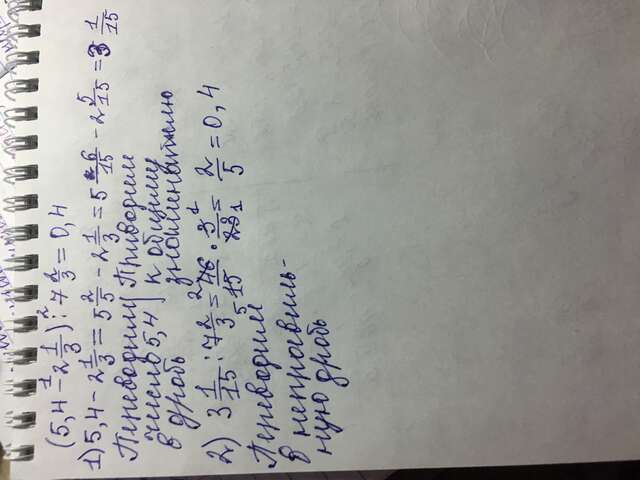 (5,4 - 2 1/3) : 7 2/3 = 0,4
1) 5,4 - 2 1/3 = 5 2/5 - 2 1/3 = 5 6/15 - 2 5/15 = 3 1/15
Переводим | Приводим
число 5,4 | к общему
в дробь | знаменателю
2) 3 1/15 : 7 2/3 = 46/15 · 3/23 = 2/5 = 0,4
Переводим
в неправиль-
ную дробь